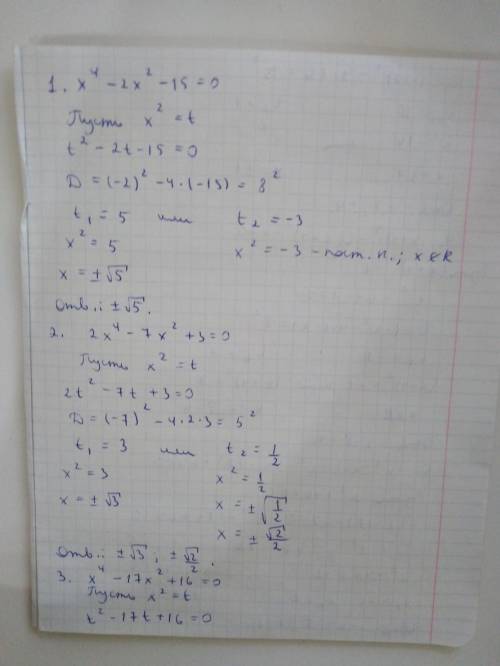 1. x⁴ - 2x² - 15 = 0
Пусть x² = t
t² - 2t - 15 = 0
D = (-2)² - 4·(-15) = 8²
t₁ = 5 или t₂ = -3
x² = 5 x² = -3 - пост. к.; x ∈ R
x = ±√5
Отв.: ±√5.
2. 2x⁴ - 7x² + 3 = 0
Пусть x² = t
2t² - 7t + 3 = 0
D = (-7)² - 4·2·3 = 5²
t₁ = 3 или t₂ = 1/2
x² = 3 x² = 1/2
x = ±√3 x = ±√(1/2)
x = ±√2/2
Отв.: ±√3; ±√2/2.
3. x⁴ - 17x² + 16 = 0
Пусть x² = t
t² - 17t + 16 = 0